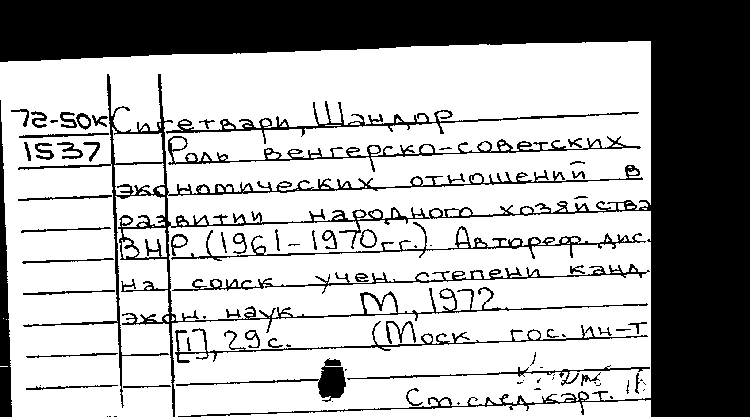 72-50к Сигетвари, Шандор
1537 Роль венгерско-советских
экономических отношений в
развитии народного хозяйства
ВНР. (1961-1970гг.). Автореф. дис.
на соиск. учен. степени канд.
экон. наук. М., 1972.
[1], 29с. (Моск. гос. ин-т
См. след. карт.